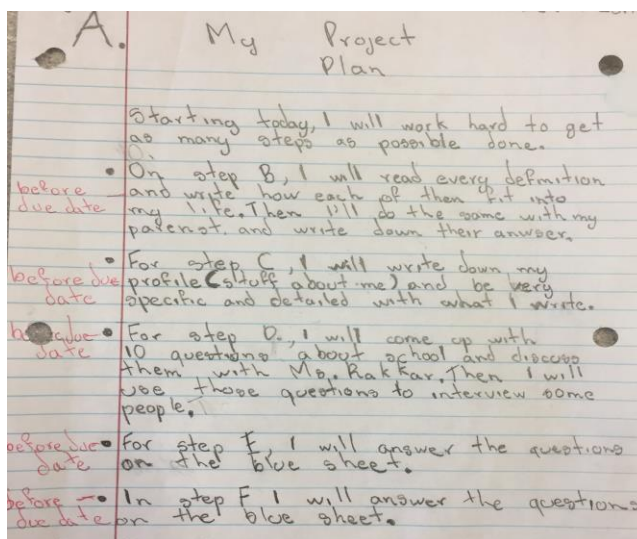 A. My Project
Plan
Starting today, I will work hard to get
as many steps as possible done.
• On step B, I will read every defenition
before
and write how each of then fit into
due date
my life. Then I'll do the same with my
parenst. and write down their anwser.
• For step C, I will write down my
before due
profile (stuff about me) and be very
date
specific and detailed with what I write.
• For step D., I will come up with
date
10 questions about school and discuss
them with Ms. Rakkar. Then I will
use those questions to interview some
people.
before due
• For step E, I will answer the questions
date
on the blue sheet.
before
• In step F I will answer the questions
due date
on the blue sheet.